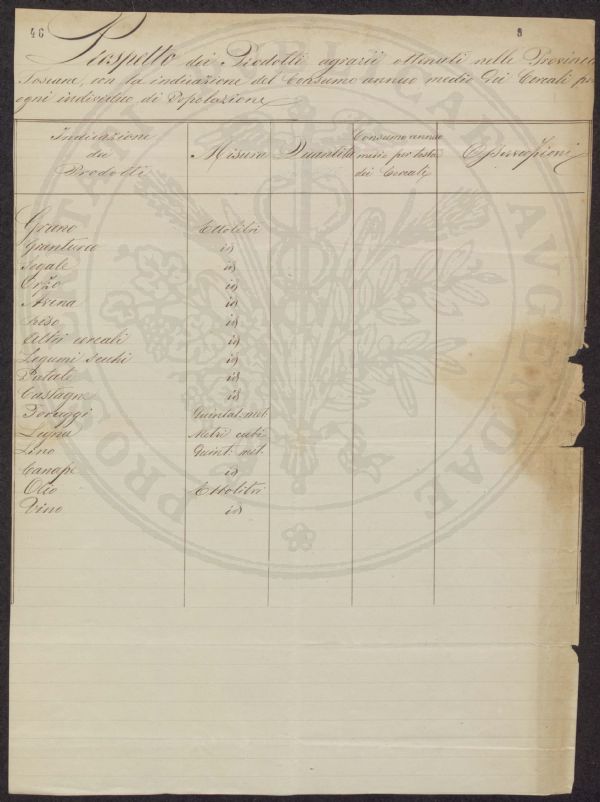 46 5
Prospetto dei Prodotti agrarii ottenuti nelle Provincie
Toscane, con la indicazione del Consumo annuo medio dei Cereali per
ogni individuo di Popolazione
Indicazione dei Prodotti Misura Quantità Consumo annuo medio per testa dei Cereali Osservazioni
Grano Ettolitri
Granturco id
Segale id
Orzo id
Avena id
Riso id
Altri cereali id
Legumi secchi id
Patate id
Castagne id
Foraggi Quintal: met.
Legna Metri cubi
Lino Quint: met.
Canape id
Olio Ettolitri
Vino id
PROSPERITATI PUBLICAE AUGENDAE